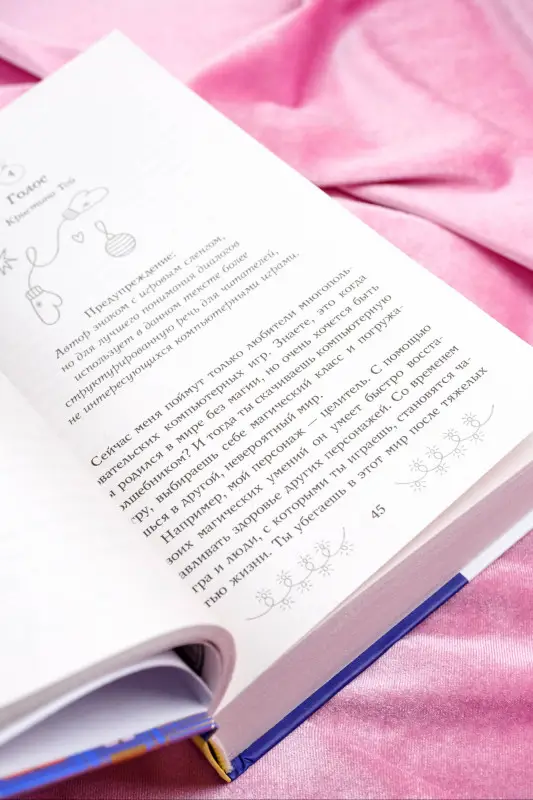 4
Голос
Кристина Той
Предупреждение:
Автор знаком с игровым сленгом,
но для лучшего понимания диалогов
использует в данном тексте более
структурированную речь для читателей,
не интересующихся компьютерными играми.
Сейчас меня поймут только любители многополь
овательских компьютерных игр. Знаете, это когда
ы родился в мире без магии, но очень хочется быть
олшебником? И тогда ты скачиваешь компьютерную
гру, выбираешь себе магический класс и погружа-
шься в другой, невероятный мир.
Например, мой персонаж — целитель. С помощью
воих магических умений он умеет быстро восста-
авливать здоровье других персонажей. Со временем
гра и люди, с которыми ты играешь, становятся ча-
тью жизни. Ты убегаешь в этот мир после тяжелых
45